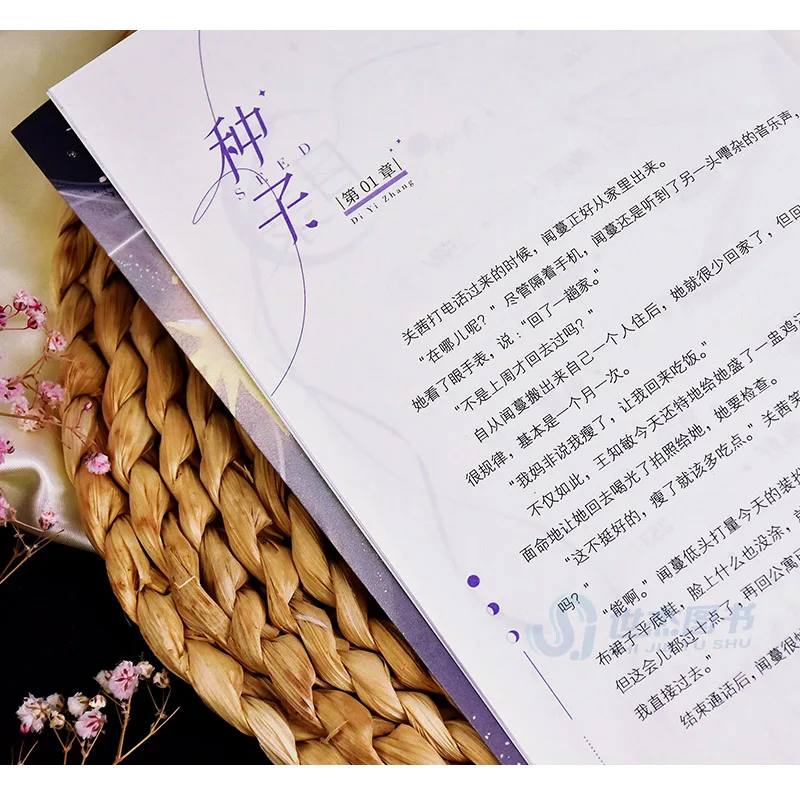 种子
SEED
第 01 章
Di Yi Zhang
关茜打电话过来的时候，闻蔓正好从家里出来。
“在哪儿呢？”尽管隔着手机，闻蔓还是听到了另一头嘈杂的音乐声，
她看了眼手表，说：“回了一趟家。”
“不是上周才回去过吗？”
自从闻蔓搬出来自己一个人住后，她就很少回家了，但回
很规律，基本是一个月一次。
“我妈非说我瘦了，让我回来吃饭。”
不仅如此，王知敏今天还特地给她盛了一盅鸡汤
面命地让她回去喝光了拍照给她，她要检查。
“这不挺好的，瘦了就该多吃点。”关茜笑
吗？”
“能啊。”闻蔓低头打量今天的装扮
布裙子平底鞋，脸上什么也没涂，
但这会儿都过了点，再回公寓
我直接过去。”
结束通话后，闻蔓很
世杰图书
SHI JIE TU SHU